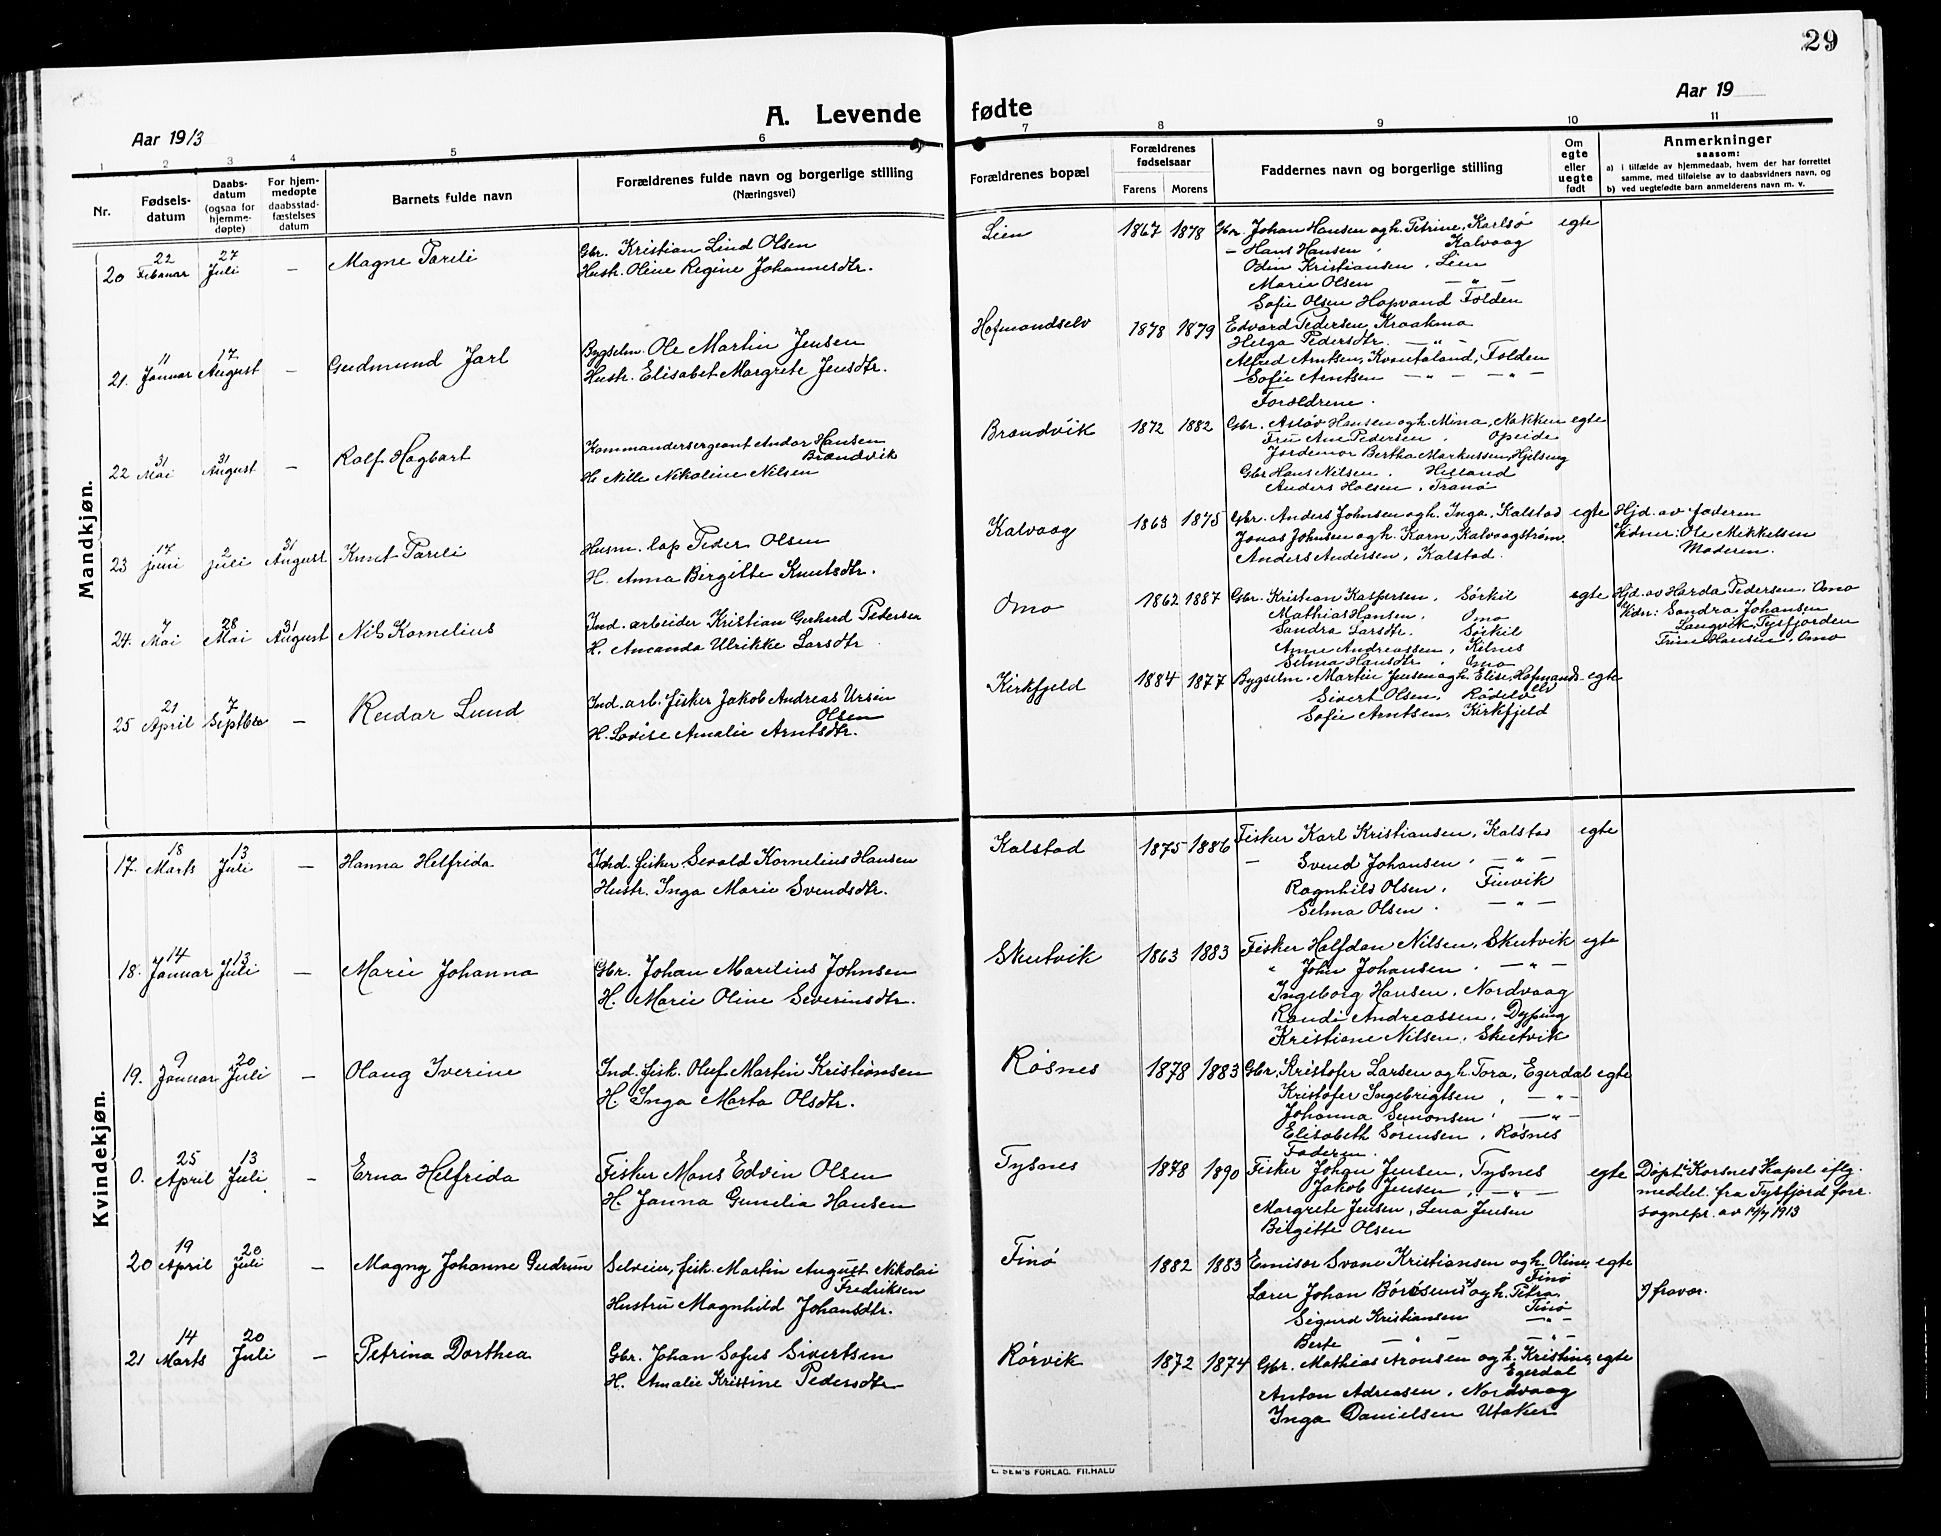 29
A. Levende fødte
Aar 1913
Aar 19
1 2 3 4 5 6 7 8 9 10 11
Nr.
Fødsels-
datum
Daabs-
datum
(ogsaa for
hjemme-
døpte)
For hjem-
medøpte
daabsstad-
fæstelses
datum
Barnets fulde navn
Forældrenes fulde navn og borgerlige stilling
(Næringsvei)
Forældrenes bopæl
Forældrenes
fødselsaar
Farens Morens
Faddernes navn og borgerlige stilling
Om
egte
eller
uegte
født
Anmerkninger
saasom:
a) i tilfælde av hjemmedaab, hvem der har forrettet
samme, med tilføielse av to daabsvidners navn, og
b) ved uegtefødte barn anmelderens navn m. v.
Mandkjøn.
20 22 Februar 27 Juli — Magne Parili
Gbr. Kristian Lind Olsen
Hustr. Oline Regine Johannesdtr.
Lien 1867 1878
Gbr. Johan Hansen og h. Petrine, Karlsö egte
— Hans Hansen, Kalvaag
Odin Kristiansen, Lien
Marie Olsen — " —
Sofie Olsen Hopvand Folden
21. 11 Januar 17 August — Gudmund Jarl
Bygselm. Ole Martin Jensen
Hustr. Elisabet Margrete Jensdtr.
Hofmandselv 1878 1879
Edvard Pedersen, Kraakmo
Helga Pedersdtr. — " —
Alfred Arntsen, Kvantoland, Folden
Sofie Arntsen — " — — " —
Forældrene.
22 31 Mai 31 August — Rolf Hagbart
Kommandersergeant Andor Hansen
Brandvik
H. Nille Nikoline Nilsen
Brandvik 1872 1882
Gbr. Asløv Hansen og h. Mina, Nakken egte
Fru Ane Pedersen, Opeide
Jordemor Bertha Markussen, Hjelseng
Gbr Hans Nilsen, Helland
Anders Holsen, Tranö
23 17 juni 2 juli 31 August Knut Parili
Husm. lap Peder Olsen
H. Anna Birgitte Knutsdtr.
Kalvaag 1863 1875
Gbr. Anders Johnsen og h. Inga, Kalstad egte
Jonas Johnsen og h. Karn, Kalvaagström
Anders Andersen, Kalstad.
Hjd. av faderen
Vidner: Ole Mikkelsen
Moderen.
24. 7 Mai 28 Mai 31 August Nils Kornelius
Ind. arbeider Kristian Gerhard Pedersen
H. Amanda Ulrikke Larsdtr
Omo 1862 1887
Gbr. Kristian Kaspersen, Sörkil egte
Mathias Hansen, Omo
Sandra Larsdtr. Sörkil
Anne Andreassen, Kilnes
Selma Hansdtr, Omo
Hjd. av Harda Pedersen, Omo
Vidn: Sandra Johansen
Langvik, Tysfjorden
Trine Hansen, Omo
25 21 April 7 Septbr — Reidar Lund
Ind. arb. fisker Jakob Andreas Ursin
Olsen
H. Lovise Amalie Arntsdtr.
Kirkfjeld 1884 1877
Bygselm. Martin Jensen og h. Elise, Hofmands- egte
elv
Sivert Olsen, Rödelv
Sofie Arntsen, Kirkfjeld
Kvindekjøn.
17. 18 Marts 13 Juli — Hanna Helfrida
Ind. fisker Sevald Kornelius Hansen
Hustr. Inga Marie Svendsdtr.
Kalstad 1875 1886
Fisker Karl Kristiansen, Kalstad egte
— Svend Johansen, — " —
Ragnhild Olsen, Finvik
Selma Olsen. — " —
18. 14 Januar 13 Juli — Marie Johanna
Gbr. Johan Marelius Johnsen
H. Marie Oline Severinsdtr.
Skutvik 1863 1883
Fisker Halfdan Nilsen, Skutvik egte
" John Johansen, — " —
Ingeborg Hansen, Nordvaag
Randi Andreassen, Dyping
Kristiane Nilsen, Skutvik
19. 9 Januar 20 Juli — Olaug Iverine
Ind. fisk. Oluf Martin Kristiansen
H. Inga Marta Olsdtr.
Røsnes 1878 1883
Gbr. Kristofer Larsen og h. Tora, Egerdal egte
Kristofer Ingebrigtsen, — " —
Johanna Simonsen, — " —
Elisabeth Sörensen, Røsnes
Faderen.
0. 25 April 13 Juli — Erna Helfrida
Fisker Mons Edvin Olsen
H. Janna Gunelia Hansen
Tysnes 1878 1890
Fisker Johan Jensen, Tysnes egte
Jakob Jensen, — " —
Margrete Jensen, Lena Jensen
Birgitte Olsen
Døpt i Korsnes Kapel iflg.
meddel. fra Tysfjord forr.
sognepr. av 1913
20 19 April 20 Juli — Magny Johanne Gudrun
Selveier, fisk. Martin August Nikolai
Fredriksen
Hustru Magnhild Johansdtr.
Finö 1882 1883
Emisær Svane Kristiansen og h. Oline, egte
Finö
Lærer Johan Börösund x) og h. Petra,
Finö
Sigurd Kristiansen — " —
Berte — " — — " —
x) fravær.
21 14 Marts 20 Juli — Petrina Dorthea
Gbr. Johan Sofus Sivertsen
H. Amalie Kristine Pedersdtr
Rörvik 1872 1874
Gbr. Mathias Aronsen og h. Kristine, egte
Egerdal
Anton Adreasen, Nordvaag
Inga Danielsen Utaker
E. SEM'S FORLAG, FR.HALD